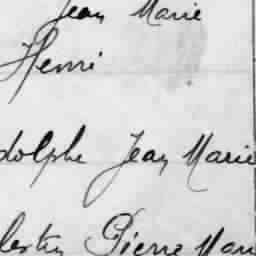 Jean Marie
Henri
dolphe Jean Marie
lestin Pierre Mari